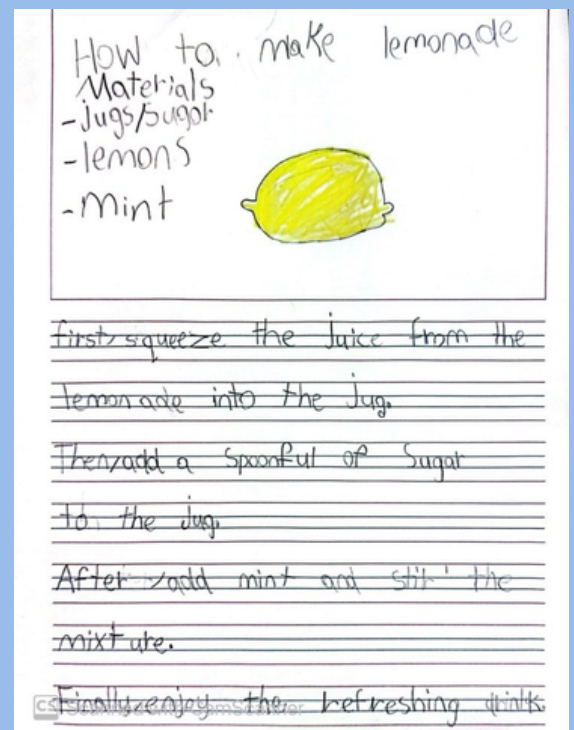 How to make lemonade
Materials
-jugs/sugar
-lemons
-mint
first, squeeze the juice from the
lemonade into the jug.
Then, add a spoonful of Sugar
to the jug.
After, add mint and stir the
mixture.
Finally, enjoy the refreshing drink.
CS